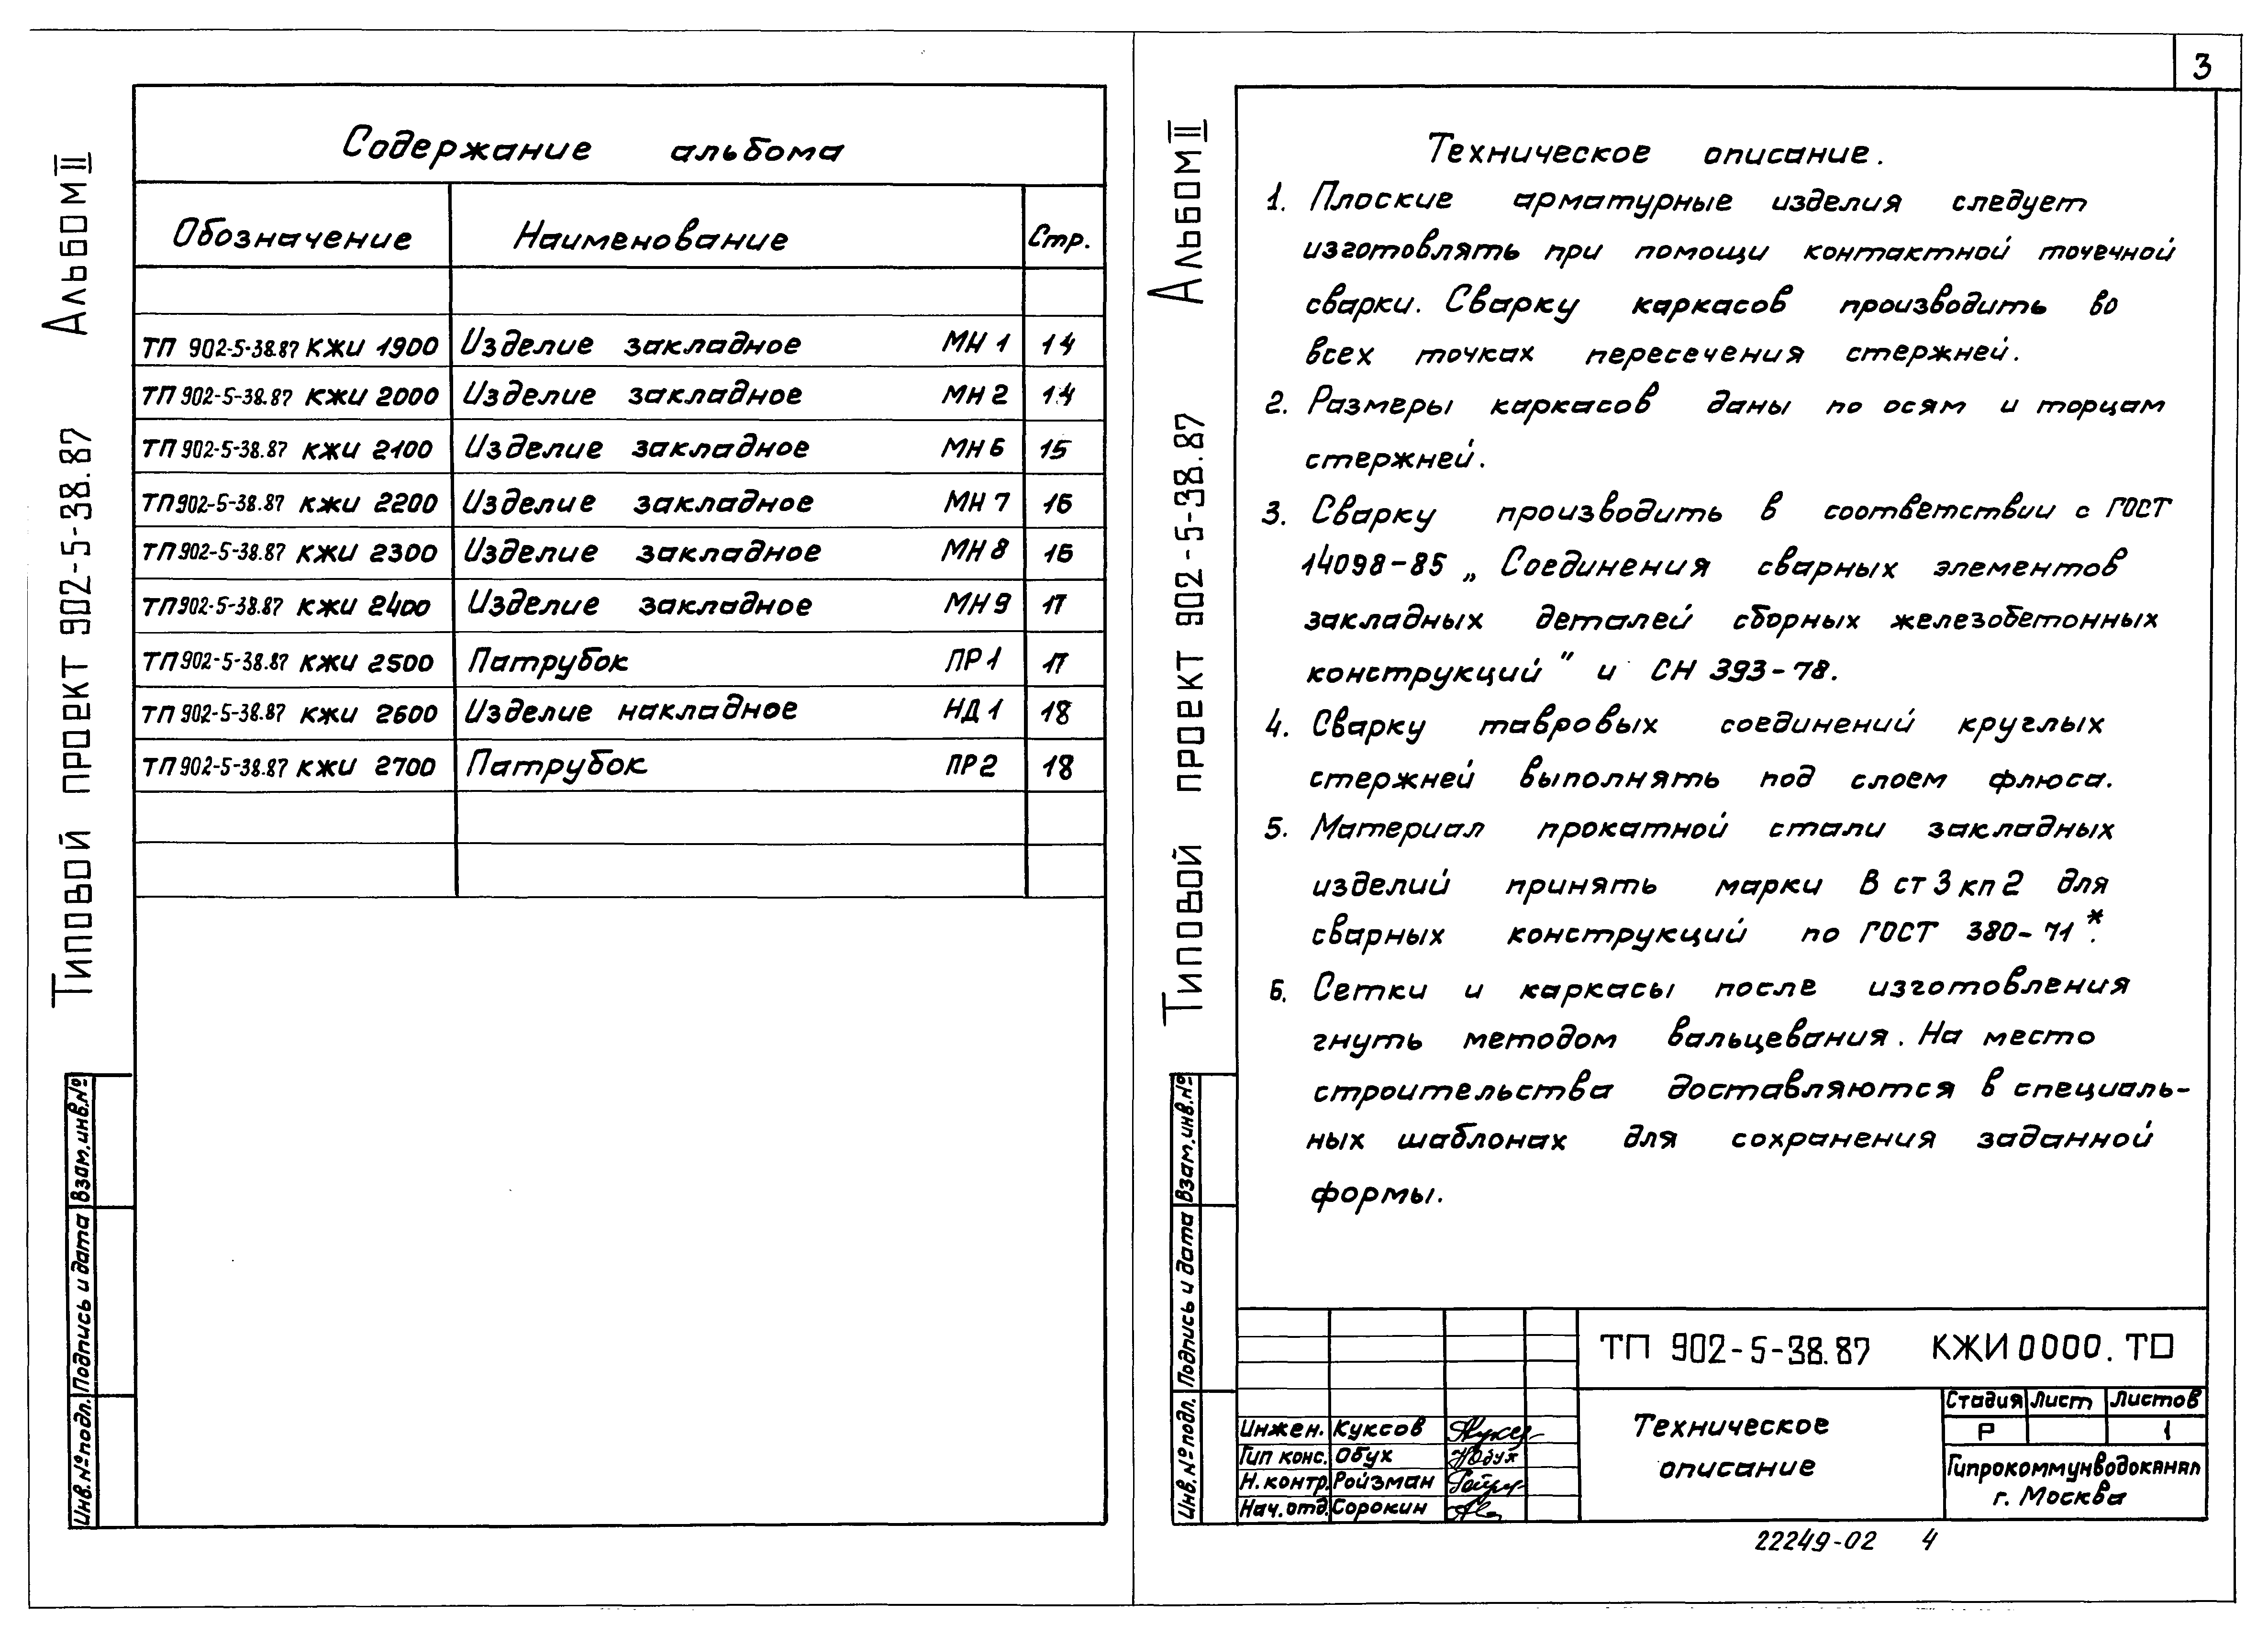 Альбом II
Типовой проект 902-5-38.87
Взам.инв.№
Подпись и дата
Инв.№подл.
Содержание альбома
Обозначение Наименование Стр.
ТП 902-5-38.87 КЖИ 1900 Изделие закладное МН 1 14
ТП 902-5-38.87 КЖИ 2000 Изделие закладное МН 2 14
ТП 902-5-38.87 КЖИ 2100 Изделие закладное МН 6 15
ТП 902-5-38.87 КЖИ 2200 Изделие закладное МН 7 16
ТП 902-5-38.87 КЖИ 2300 Изделие закладное МН 8 16
ТП 902-5-38.87 КЖИ 2400 Изделие закладное МН 9 17
ТП 902-5-38.87 КЖИ 2500 Патрубок ПР 1 17
ТП 902-5-38.87 КЖИ 2600 Изделие накладное НД 1 18
ТП 902-5-38.87 КЖИ 2700 Патрубок ПР 2 18
3
Альбом II
Типовой проект 902-5-38.87
Взам.инв.№
Подпись и дата
Инв.№подл.
Техническое описание.
1. Плоские арматурные изделия следует
изготовлять при помощи контактной точечной
сварки. Сварку каркасов производить во
всех точках пересечения стержней.
2. Размеры каркасов даны по осям и торцам
стержней.
3. Сварку производить в соответствии с ГОСТ
14098-85 „Соединения сварных элементов
закладных деталей сборных железобетонных
конструкций" и СН 393-78.
4. Сварку тавровых соединений круглых
стержней выполнять под слоем флюса.
5. Материал прокатной стали закладных
изделий принять марки В ст 3 кп 2 для
сварных конструкций по ГОСТ 380-71*.
6. Сетки и каркасы после изготовления
гнуть методом вальцевания. На место
строительства доставляются в специаль-
ных шаблонах для сохранения заданной
формы.
ТП 902-5-38.87 КЖИ 0000.ТО
Техническое
описание
Стадия Лист Листов
Р 1
Гипрокоммунводоканал
г. Москва
Инжен. Куксов
Гип конс. Обух
Н.контр. Ройзман
Нач.отд. Сорокин
22249-02 4